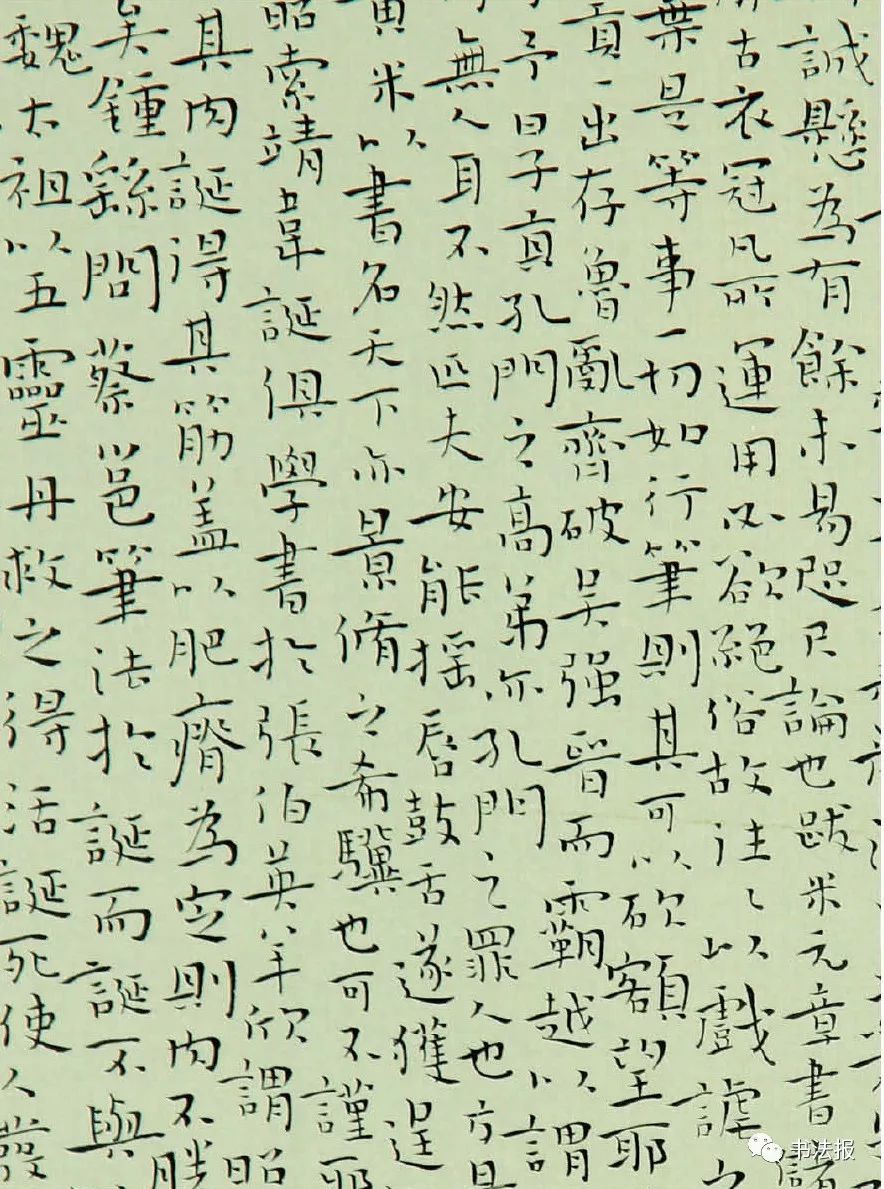 誠懸為有餘未易咫尺論也跋米元章書
古衣冠凡所運用必欲絕俗故往〻以戲謔之
葉是等事一切如行筆則其可以砍客額望耶
貢一出存魯亂齊破吳强晉而霸越以謂
予曰子貢孔門之高弟亦孔門之罪人也方是
無人耳不然匹夫安能搖唇鼓舌遂獲逞
黃米以書名天下亦景脩之希驥也可不謹耶
昭索靖韋誕俱學書於張伯英羊欣謂昭
其肉誕得其筋蓋以肥瘠為定則肉不勝
矣鍾繇問蔡邕筆法於誕而誕不與
魏太祖以五靈丹救之得活誕死使人發
书法报